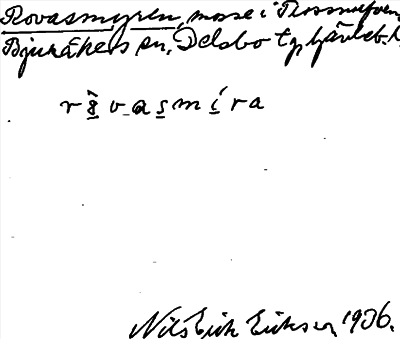 Rovasmyren, mosse i
Bjuråkers sn, Delsbo tg, Gävleb. l.
rŝvasmíra
Nils Erik Eriksson 1906.